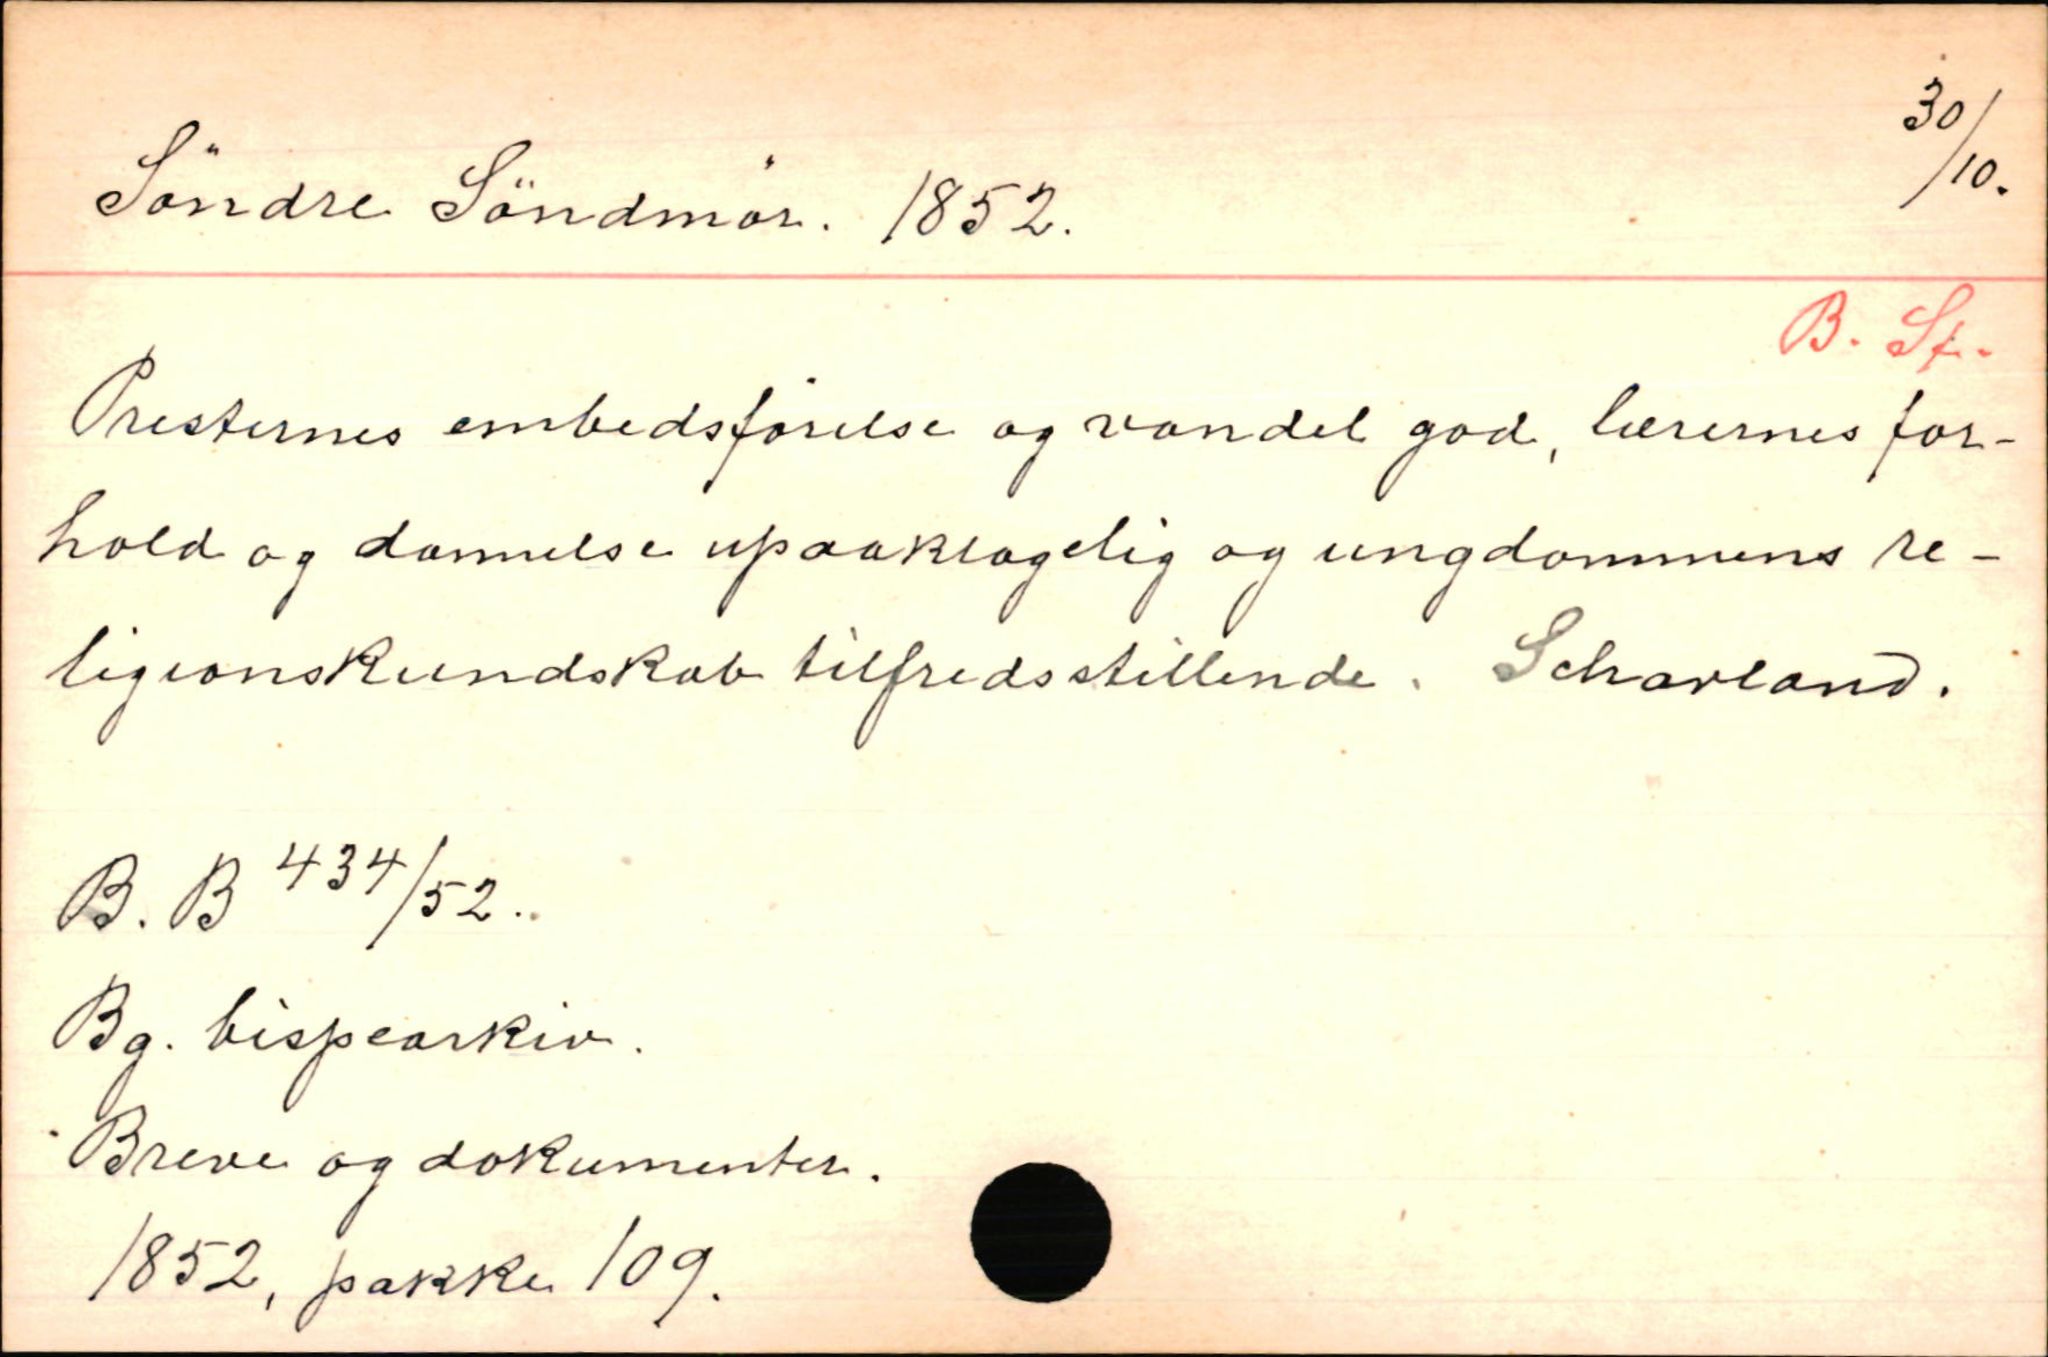 Söndre Söndmör. 1852. 30/10.
B. St.
Presternes embedsförelse og vandel god, lærernes for-
hold og dannelse upaaklagelig og ungdommens re-
ligionskundskab tilfredsstillende. Scharland.
B. B 434/52.
Bg. bispearkiv.
Breve og dokumenter.
1852, pakke 109.